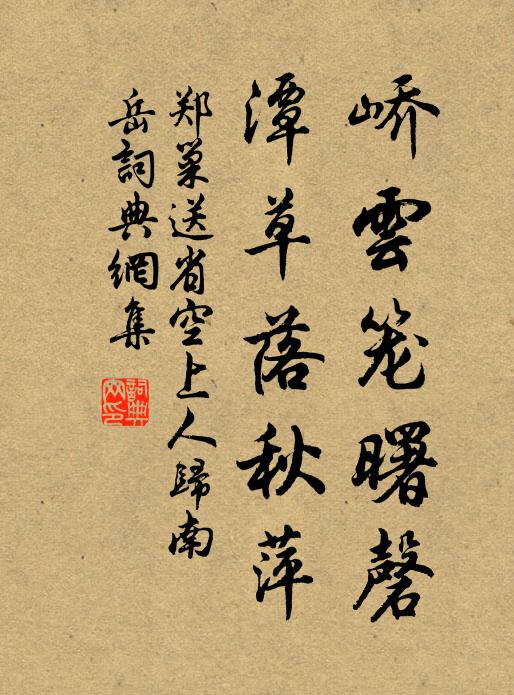 峤雲笼曙磬
潭草落秋萍
郑巢送省空上人歸南
岳詞典網集
詞典網印